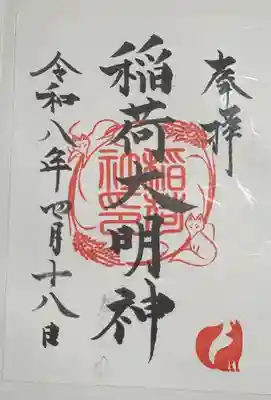 奉拝
稲荷大明神
稲荷
神社印
令和八年四月十八日